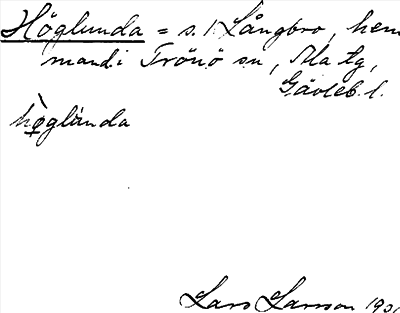 Höglunda = s. 1 Långbro, hem
mand i Trönö sn, Ala tg,
Gävleb. l.
hö̀glùnda
Lars Larsson 190